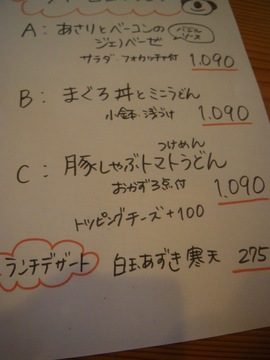 A: あさりとベーコンの
ジェノベーゼ
バジル
ソース
サラダ フォカッチャ付 1.090
B: まぐろ丼とミニうどん
小鉢・浅づけ 1.090
つけめん
C: 豚しゃぶトマトうどん
おかず3点付 1.090
トッピングチーズ+100
ランチデザート 白玉あずき寒天 275